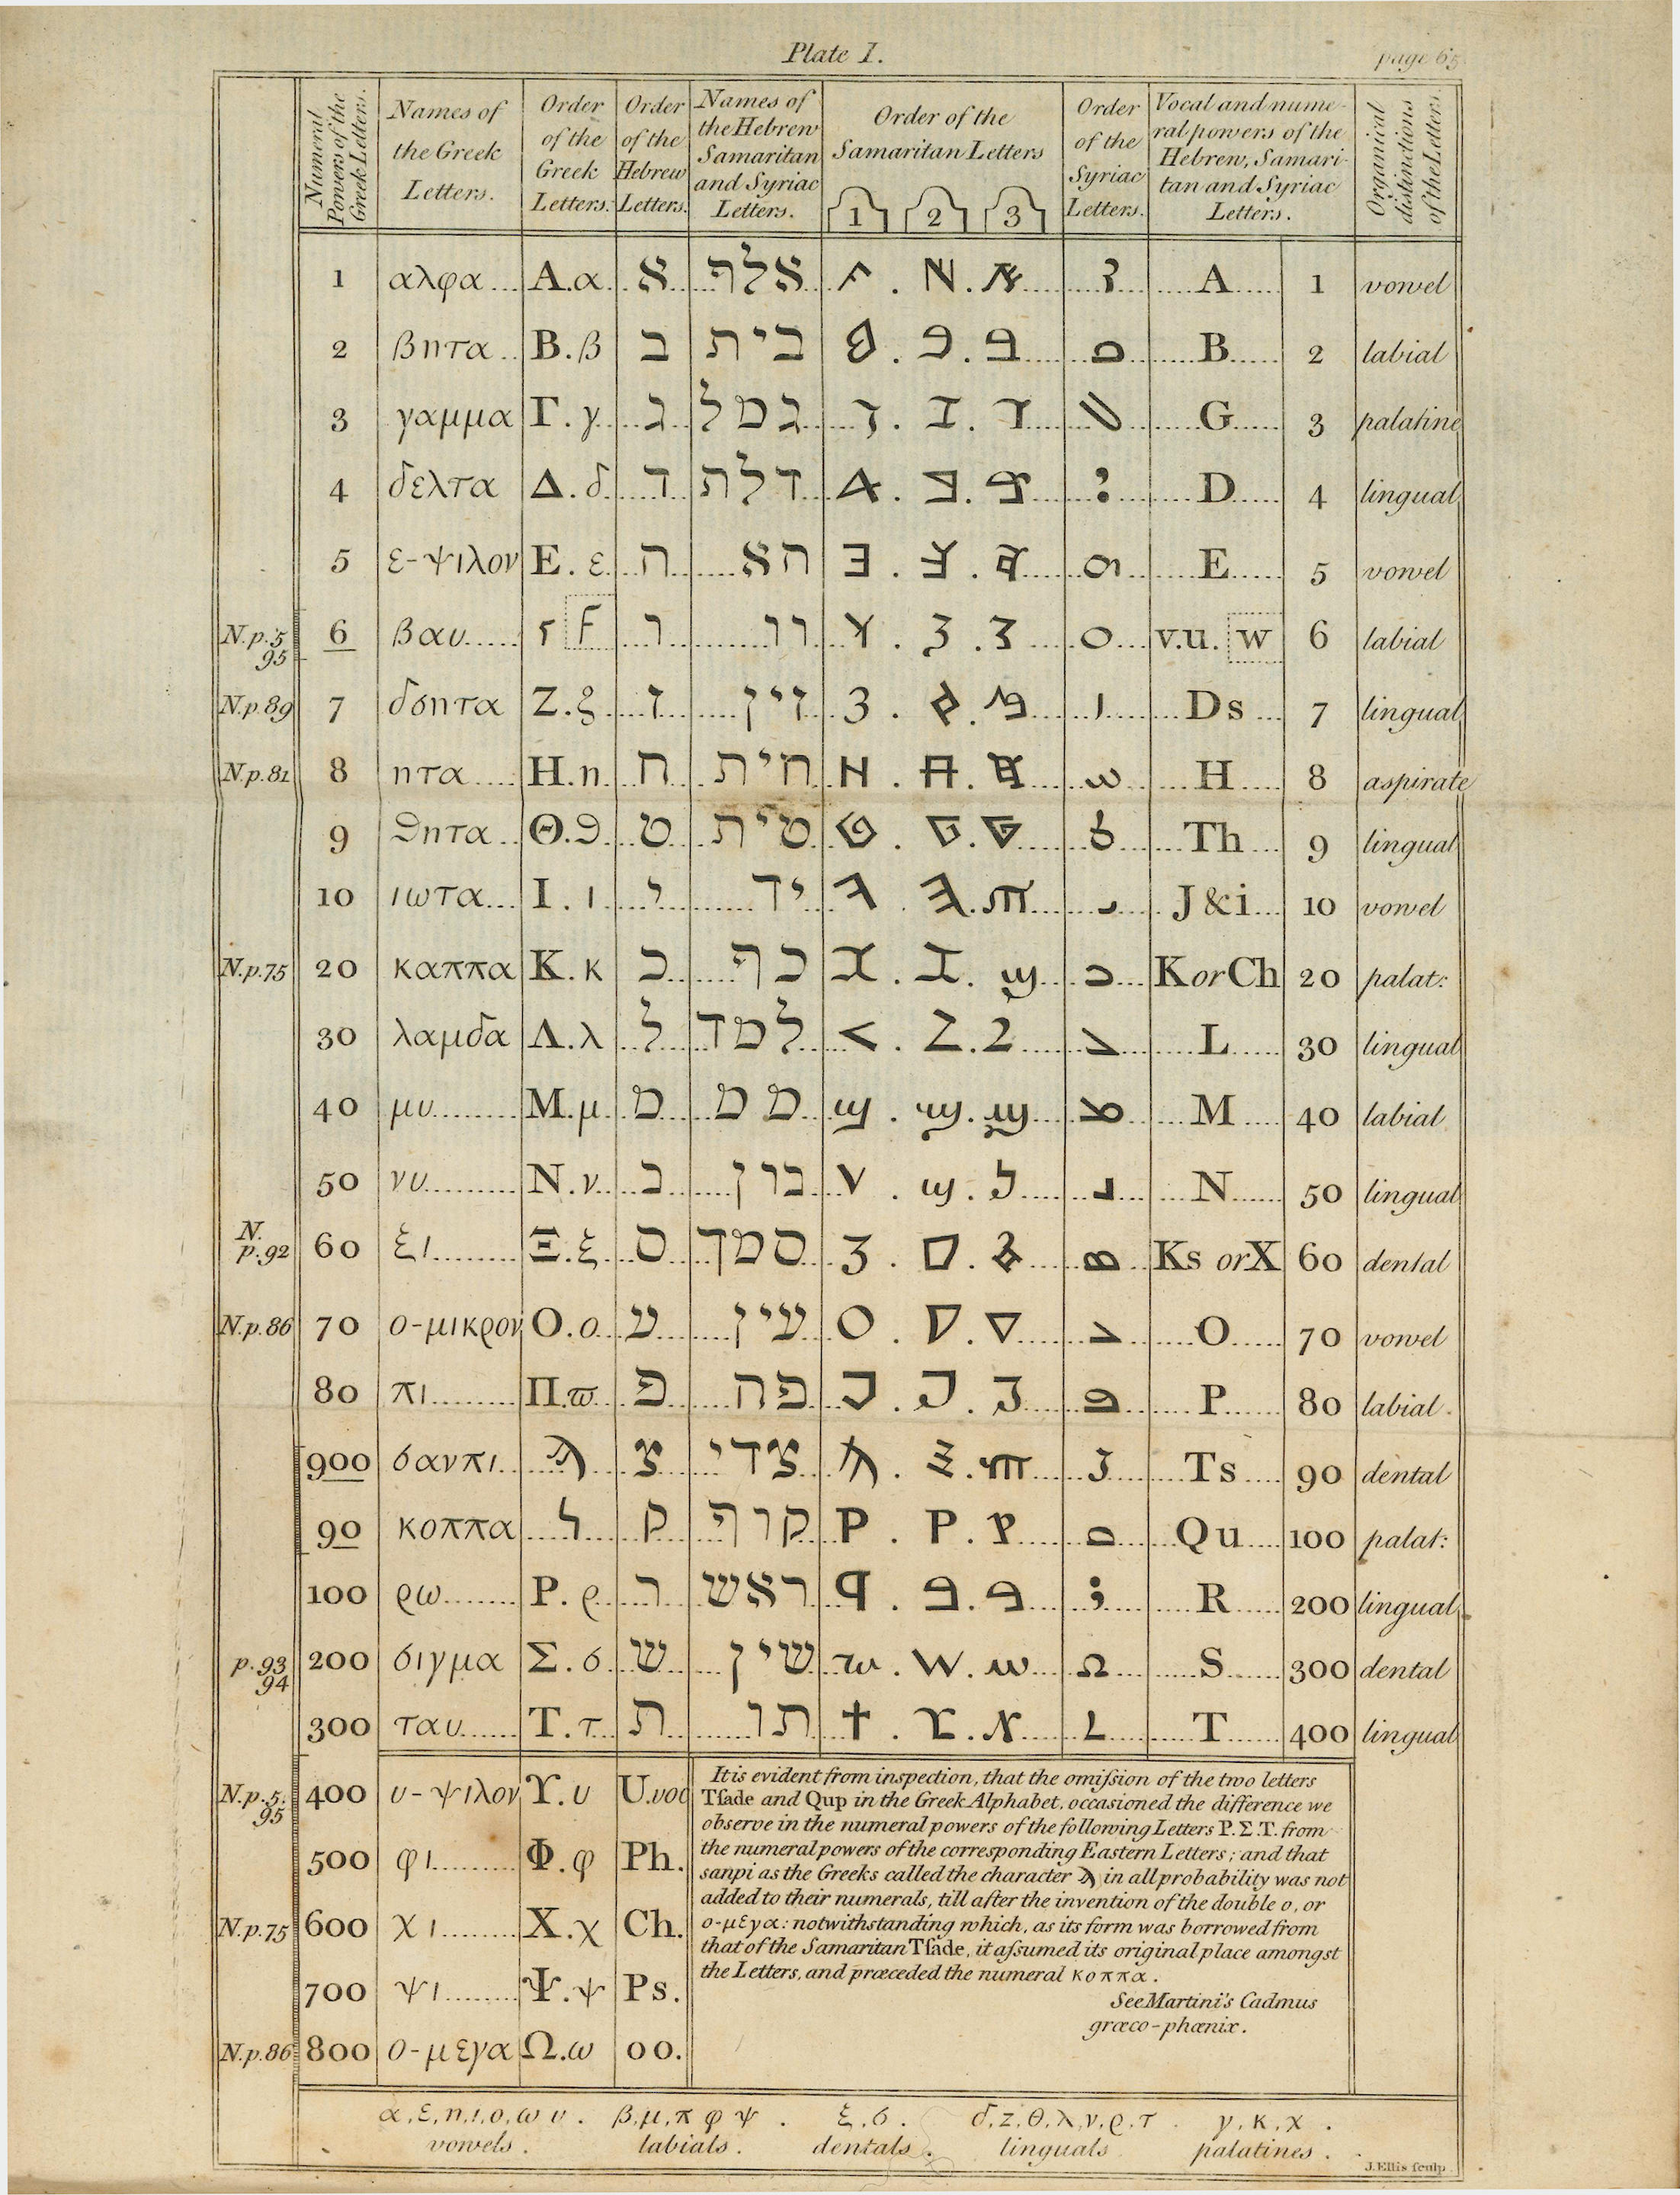 Plate I.
page 65
Numeral Powers of the Greek Letters.
Names of the Greek Letters.
Order of the Greek Letters.
Order of the Hebrew Letters.
Names of the Hebrew Samaritan and Syriac Letters.
Order of the Samaritan Letters
1 2 3
Order of the Syriac Letters.
Vocal and numeral powers of the Hebrew, Samaritan and Syriac Letters.
Organical distinctions of the Letters.
1 αλφα... Α.α. א אלף A 1 vowel
2 βητα.. Β.β ב בית B 2 labial
3 γαμμα Γ.γ ג גמל G 3 palatine
4 δελτα Δ.δ ד דלת D 4 lingual
5 ε-ψιλον Ε.ε ה הא E 5 vowel
N.p.5 95 6 βαυ F ו וו v.u. w 6 labial
N.p.89 7 δσητα Ζ.ζ ז זין Ds 7 lingual
N.p.81 8 ητα Η.η ח חית H 8 aspirate
9 ϑητα Θ.ϑ ט טית Th 9 lingual
10 ιωτα Ι.ι י יד J & i 10 vowel
N.p.75 20 καππα Κ.κ כ כף K or Ch 20 palat:
30 λαμδα Λ.λ ל למד L 30 lingual
40 μυ Μ.μ מ מם M 40 labial
50 νυ Ν.ν נ נון N 50 lingual
N. p.92 60 ξι Ξ.ξ ס סמך Ks or X 60 dental
N.p.86 70 ο-μικρον Ο.ο ע עין O 70 vowel
80 πι Π.ϖ פ פה P 80 labial.
900 σανπι ϡ צ צדי Ts 90 dental
90 κοππα ק קוף Qu 100 palat:
100 ρω Ρ.ρ ר ראש R 200 lingual
p.93 94 200 σιγμα Σ.σ ש שין S 300 dental
300 ταυ Τ.τ ת תו T 400 lingual
N.p.5. 95 400 υ-ψιλον ϒ.υ
500 φι Φ.φ Ph.
N.p.75 600 χι Χ.χ Ch.
700 ψι Ψ.ψ Ps.
N.p.86 800 ο-μεγα Ω.ω oo.
It is evident from inspection, that the omiſsion of the two letters
Tſade and Qup in the Greek Alphabet, occasioned the difference we
observe in the numeral powers of the following Letters Ρ.Σ.Τ. from
the numeral powers of the corresponding Eastern Letters; and that
sanpi as the Greeks called the character ϡ in all probability was not
added to their numerals, till after the invention of the double o, or
ο-μεγα: notwithstanding which, as its form was borrowed from
that of the Samaritan Tſade, it aſsumed its original place amongst
the Letters, and præceded the numeral κοππα.
See Martini's Cadmus
græco-phœnix.
α,ε,η,ι,ο,ω υ. β,μ,π φ ψ. ξ,σ. δ,z,θ,λ,ν,ρ,τ. γ,κ,χ.
vowels. labials. dentals. linguals palatines.
J. Ellis ſculp.